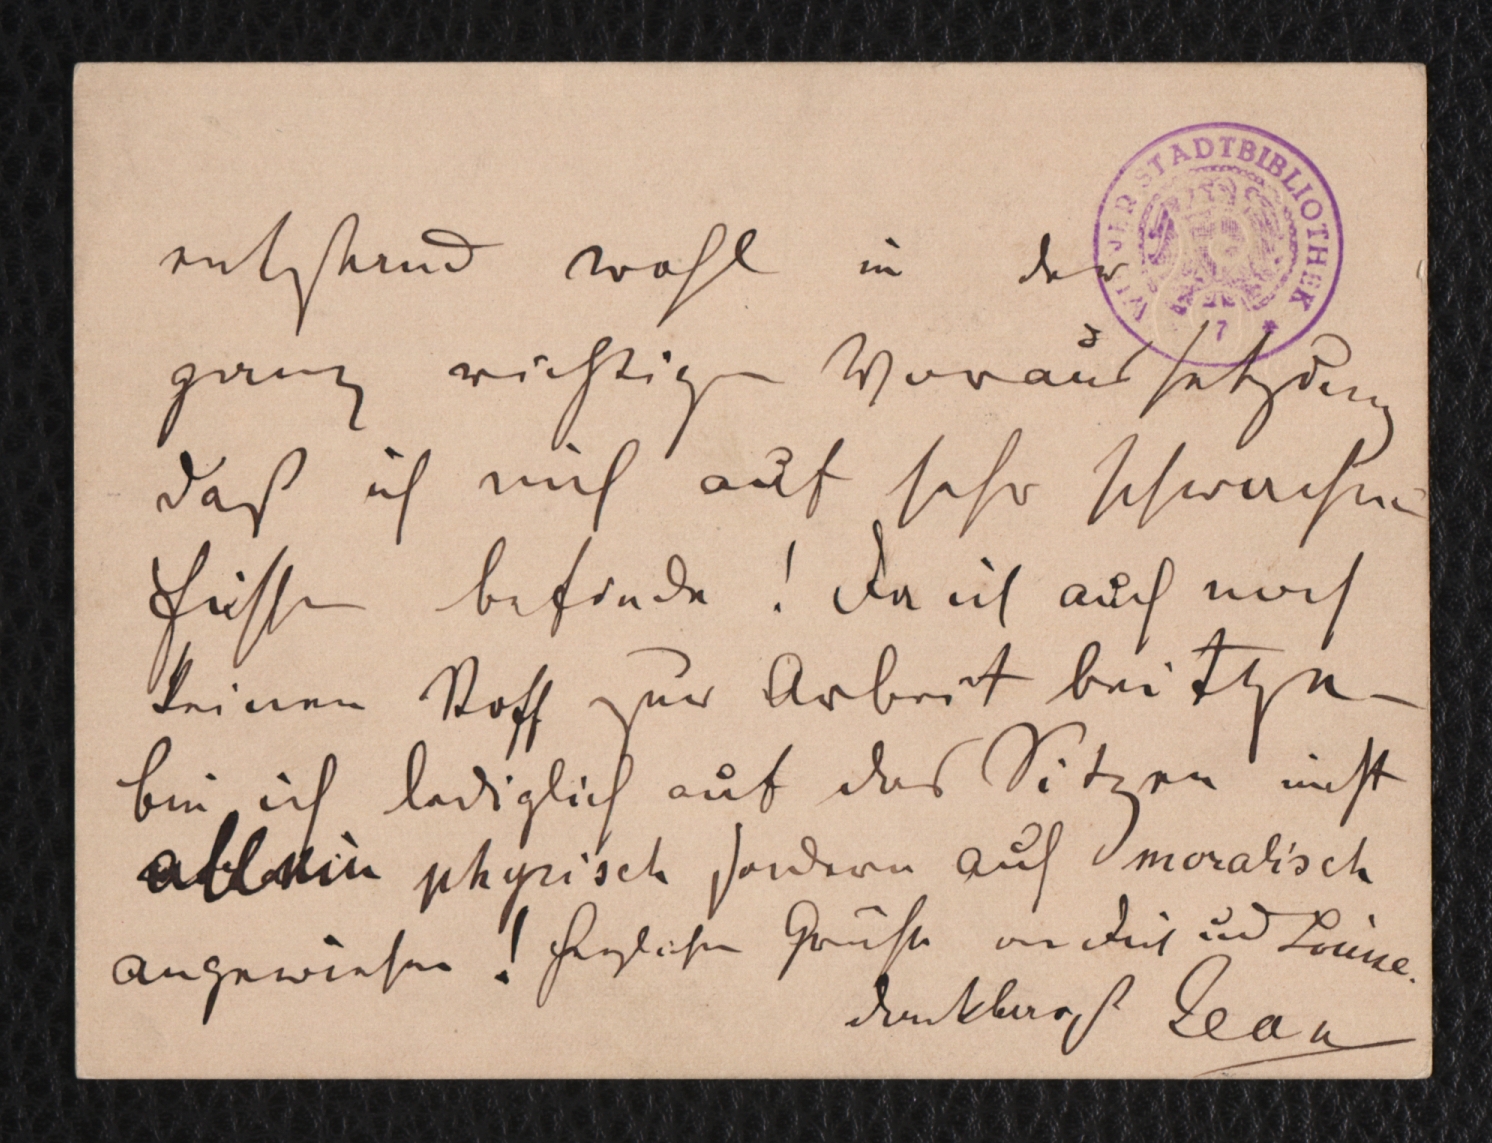 WIENER STADTBIBLIOTHEK
7 *
entstand wohl in der
ganz richtigen Voraussetzung
daß ich mich auf sehr schwachen
Füssen befinde! Da ich auch noch
keinen Stoff zur Arbeit beitzen
bin ich lediglich auf das Sitzen nicht
allein physisch sondern auch moralisch
angewiesen! Herzlichen Grüße an Dich und Louise.
dankbarst Jean